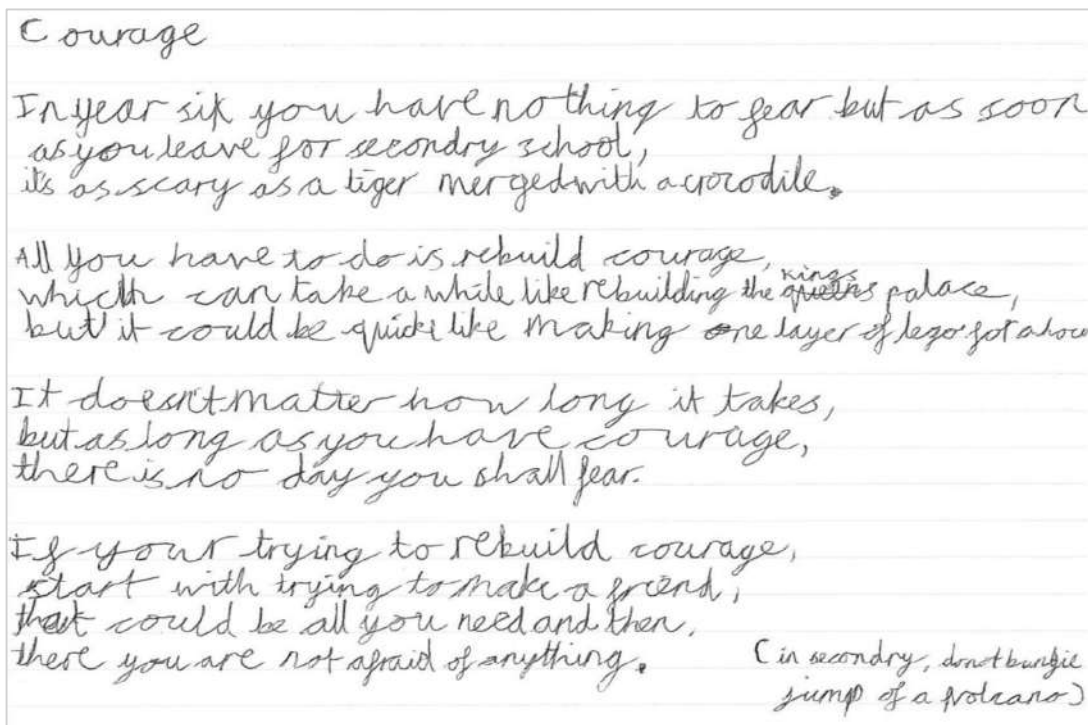 Courage
In year six you have nothing to fear but as soon
as you leave for secondry school,
it's as scary as a tiger merged with a crocodile.
All you have to do is rebuild courage,
which can take a while like rebuilding the kings palace,
but it could be quick like making one layer of lego for a
It doesn't matter how long it takes,
but as long as you have courage,
there is no day you shall fear.
If your trying to rebuild courage,
start with trying to make a freind,
that could be all you need and then,
there you are not afraid of anything.
(in secondry, do not bungie
jump of a volcano)